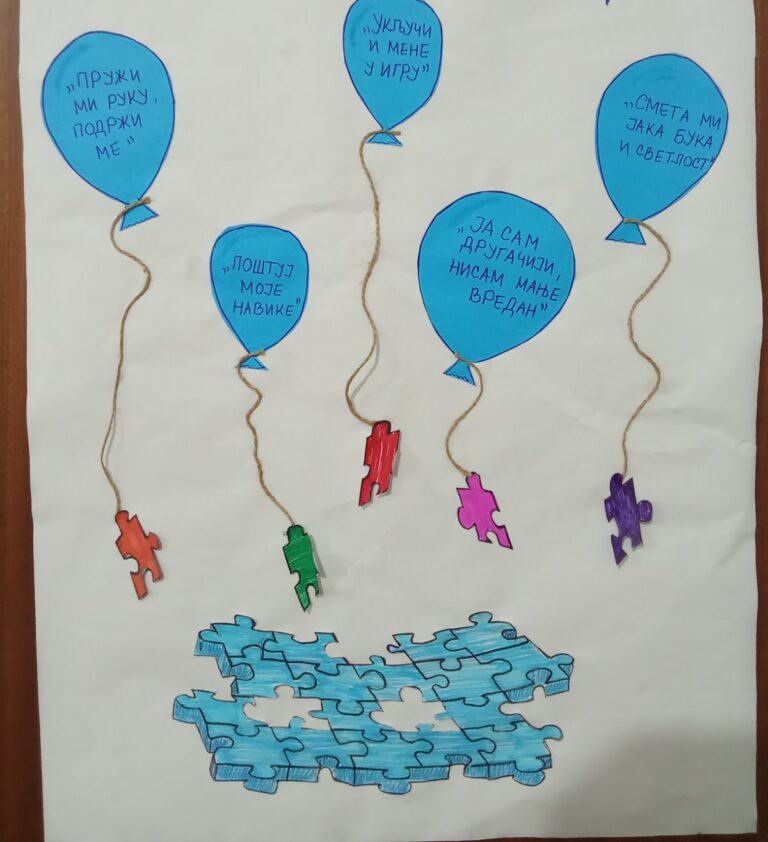 „ПРУЖИ
МИ РУКУ,
ПОДРЖИ
МЕ"
„УКЉУЧИ
И МЕНЕ
У ИГРУ"
„СМЕТА МИ
ЈАКА БУКА
И СВЕТЛОСТ"
„ПОШТУЈ
МОЈЕ
НАВИКЕ"
„ЈА САМ
ДРУГАЧИЈИ,
НИСАМ МАЊЕ
ВРЕДАН"